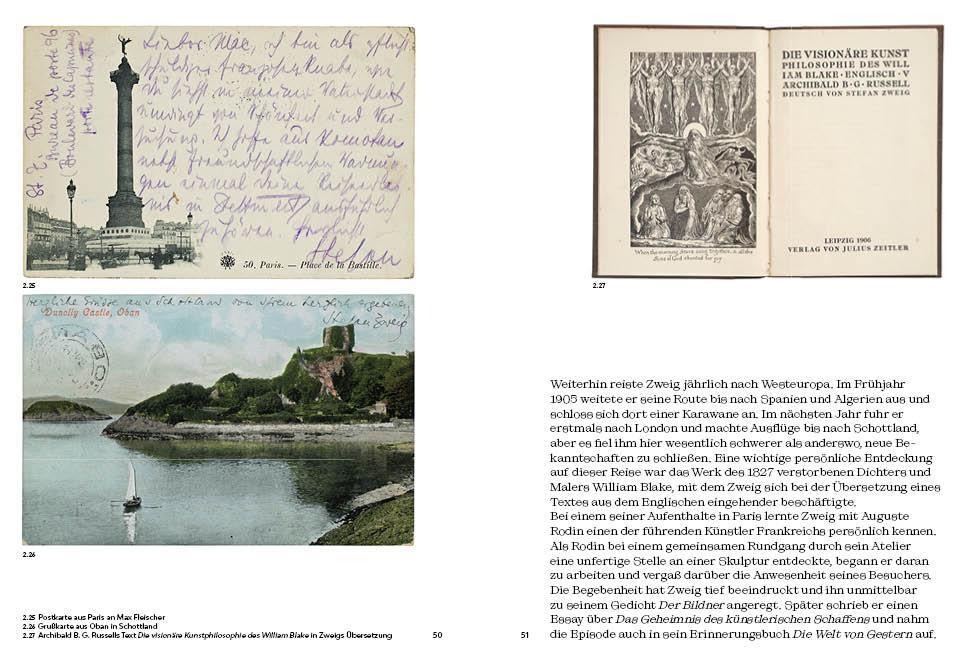 St. Z. Paris
Bureau de poste 96
(Boulevard des Capucines)
poste restante
Lieber Max, ich bin als
in meiner
von Schönheit und Ver-
suchung. Ich hoffe aus Komotau
nebst freundschaftlichen
gen einmal deine
in ausführlich
zu hören. Herzlichst
Stefan
50. Paris. — Place de la Bastille.
2.25
Herzliche Grüße aus Schottland von Ihrem herzlich ergebenen
Stefan Zweig
Dunolly Castle, Oban
OBA
2.26
2.25 Postkarte aus Paris an Max Fleischer
2.26 Grußkarte aus Oban in Schottland
2.27 Archibald B. G. Russells Text Die visionäre Kunstphilosophie des William Blake in Zweigs Übersetzung
50
When the morning Stars sang together, & all the
Sons of God shouted for joy
DIE VISIONÄRE KUNST
PHILOSOPHIE DES WILL
IAM BLAKE · ENGLISCH · V
ARCHIBALD B · G · RUSSELL
DEUTSCH VON STEFAN ZWEIG
LEIPZIG 1906
VERLAG VON JULIUS ZEITLER
2.27
Weiterhin reiste Zweig jährlich nach Westeuropa. Im Frühjahr
1905 weitete er seine Route bis nach Spanien und Algerien aus und
schloss sich dort einer Karawane an. Im nächsten Jahr fuhr er
erstmals nach London und machte Ausflüge bis nach Schottland,
aber es fiel ihm hier wesentlich schwerer als anderswo, neue Be-
kanntschaften zu schließen. Eine wichtige persönliche Entdeckung
auf dieser Reise war das Werk des 1827 verstorbenen Dichters und
Malers William Blake, mit dem Zweig sich bei der Übersetzung eines
Textes aus dem Englischen eingehender beschäftigte.
Bei einem seiner Aufenthalte in Paris lernte Zweig mit Auguste
Rodin einen der führenden Künstler Frankreichs persönlich kennen.
Als Rodin bei einem gemeinsamen Rundgang durch sein Atelier
eine unfertige Stelle an einer Skulptur entdeckte, begann er daran
zu arbeiten und vergaß darüber die Anwesenheit seines Besuchers.
Die Begebenheit hat Zweig tief beeindruckt und ihn unmittelbar
zu seinem Gedicht Der Bildner angeregt. Später schrieb er einen
Essay über Das Geheimnis des künstlerischen Schaffens und nahm
die Episode auch in sein Erinnerungsbuch Die Welt von Gestern auf.
51